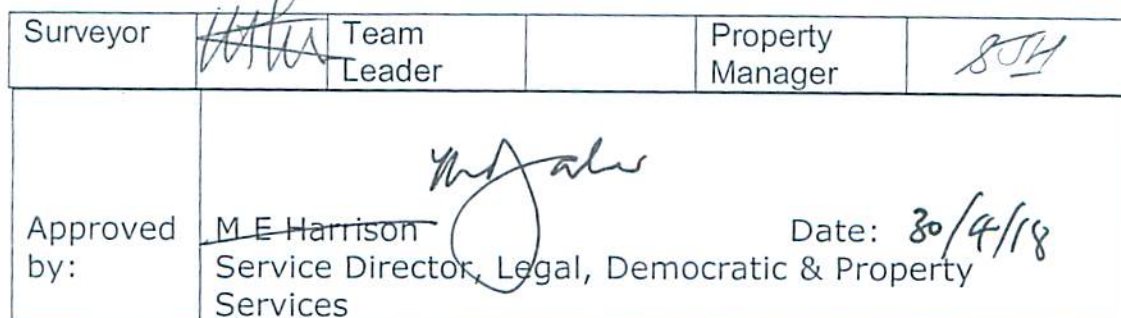 Surveyor Team Leader Property Manager SJH
Approved by: M E Harrison Date: 30/4/18
Service Director, Legal, Democratic & Property
Services